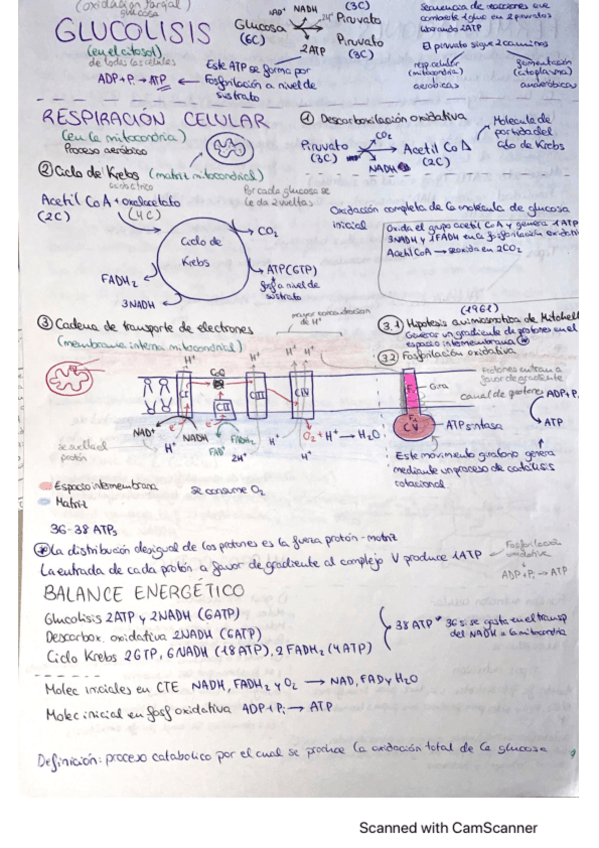 (oxidación parcial)
glucosa
GLUCOLISIS
(en el citosol)
de todas las células
ADP+Pi → ATP
Este ATP se forma por
Fosforilación a nivel de
sustrato
NAD+ NADH
Glucosa
(6C)
2H+
2 ATP
(3C)
Piruvato
Piruvato
(3C)
Secuencia de reacciones que
convierte 1 gluc en 2 piruvatos
liberando 2ATP
El piruvato sigue 2 caminos
resp celular
(mitocondria)
aeróbicas
fermentación
(citoplasma)
anaeróbicas
RESPIRACIÓN CELULAR
(en la mitocondria)
Proceso aeróbico
① Descarboxilación oxidativa
Piruvato
(3C)
CO2
NADH
Acetil CoA
(2C)
Molécula de
partida del
Ciclo de Krebs
② Ciclo de Krebs (matriz mitocondrial)
Por cada glucosa se
le da 2 vueltas
Acetil CoA + oxalacetato
(2C) (4C)
Ciclo de
Krebs
CO2
ATP(GTP)
fosf a nivel de
sustrato
FADH2
3NADH
Oxidación completa de la molécula de glucosa
inicial
Oxida el grupo acetil CoA y genera 1 ATP
3NADH y 1FADH en la fosforilación oxidativa
Acetil CoA → se oxida en 2CO2
③ Cadena de transporte de electrones
(membrana interna mitocondrial)
mayor concentración
de H+
(1961)
3.1 Hipotesis quimiosmótica de Mitchell
Generar un gradiente de protones en el
espacio intermembrana
3.2 Fosforilación oxidativa
H+ H+ H+ H+
CoQ
CI CII CIII CIV
NAD+ NADH
e- FADH2
FAD+
H+ 2H+ H+ H+
O2 + H+ → H2O
se suelta el
protón
Protones entran a
favor de gradiente
Gira
canal de protones
ADP+Pi
ATP
CV
ATP sintasa
Este movimiento giratorio genera
mediante un proceso de catálisis
rotacional
Espacio intermembrana
Matriz
se consume O2
36-38 ATPs
* La distribución desigual de los protones es la fuerza protón-motriz
La entrada de cada protón a favor de gradiente al complejo V produce 1 ATP
Fosforilación
oxidativa
ADP+Pi → ATP
BALANCE ENERGÉTICO
Glucolisis 2ATP y 2NADH (6ATP)
Descarbox. oxidativa 2NADH (6ATP)
Ciclo Krebs 2GTP, 6NADH (18ATP), 2FADH2 (4ATP)
38 ATP * 36 si se gasta en el transp
del NADH a la mitocondria
Molec iniciales en CTE NADH, FADH2 y O2 → NAD, FAD y H2O
Molec inicial en fosf oxidativa ADP+Pi → ATP
Definición: proceso catabolico por el cual se produce la oxidación total de la glucosa
Scanned with CamScanner